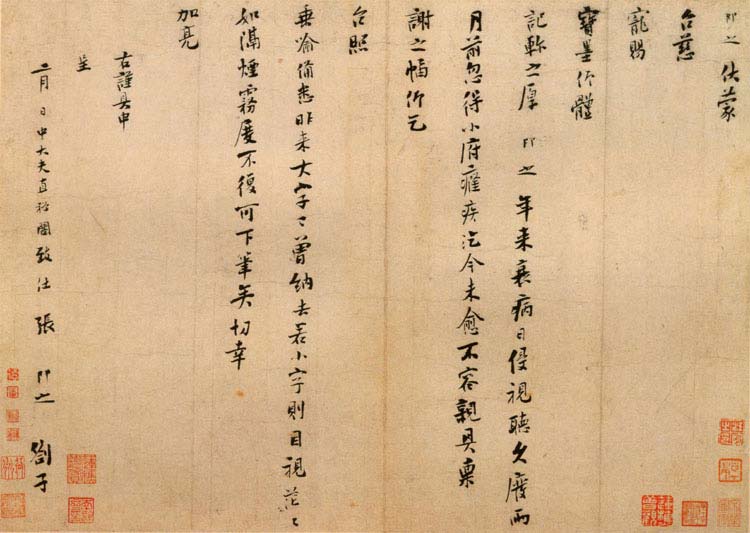 即之 伏蒙
台慈
寵賜
寶墨仰體
記軫之厚 即之 年來衰病日侵視聽久廢兩
月前忽得小府癃疾迄今未愈不容親具稟
謝之幅仰乞
台照
垂喻備悉昨來大字已曾納去若小字則目視茫々
如滿煙霧廢不復可下筆矣切幸
加亮
右謹具申
呈
二月 日中大夫直秘閣致仕 張 即之 劄子